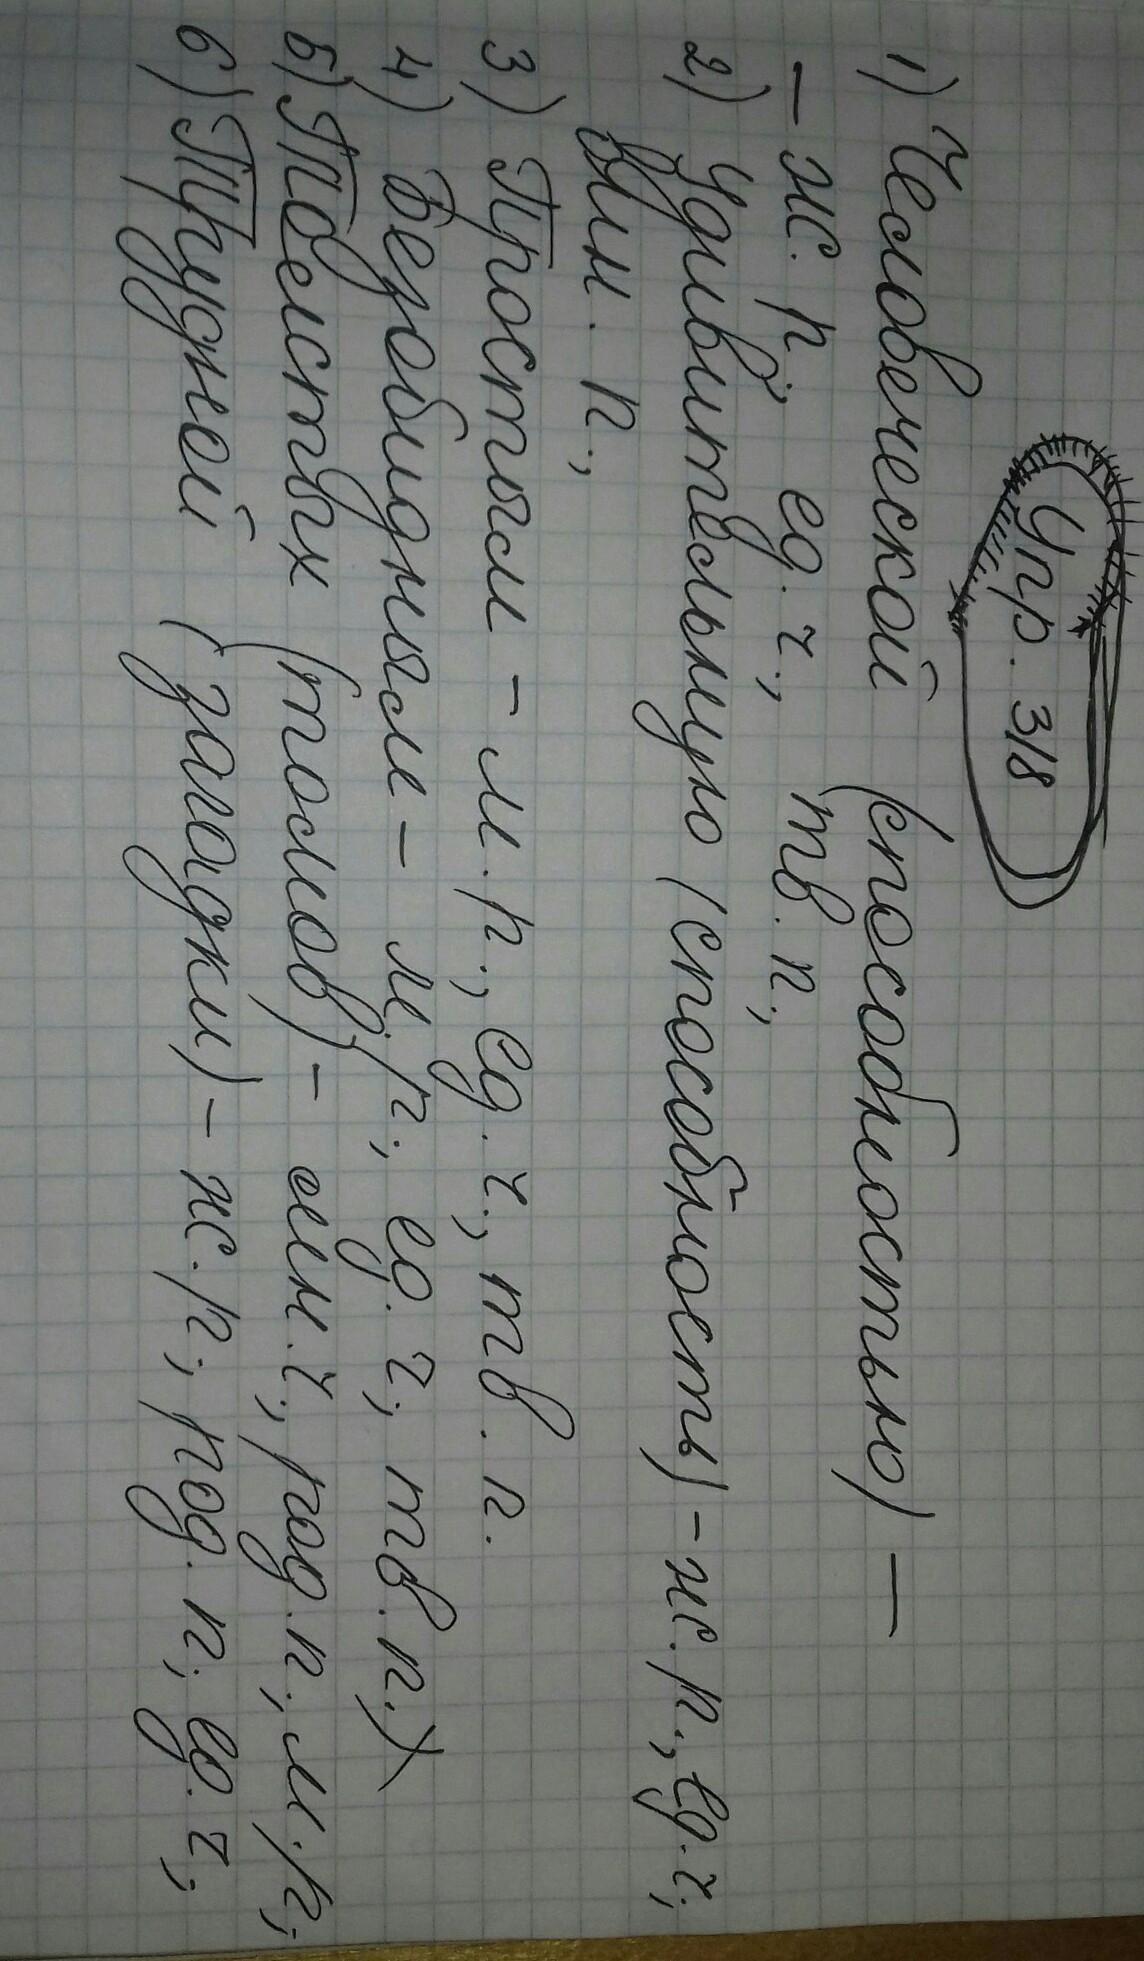 Упр. 318
1) Человеческой (способностью) –
– ж. р., ед. ч., тв. п.,
2) Удивительную (способность) – ж. р., ед. ч.,
вин. п.,
3) Простым – м. р., ед. ч., тв. п.
4) Безобидным – м. р., ед. ч., тв. п.)
5) Толстых (томов) – мн. ч., род. п., м. р.,
6) Трудней (загадки) – ж. р., род. п., ед. ч.,